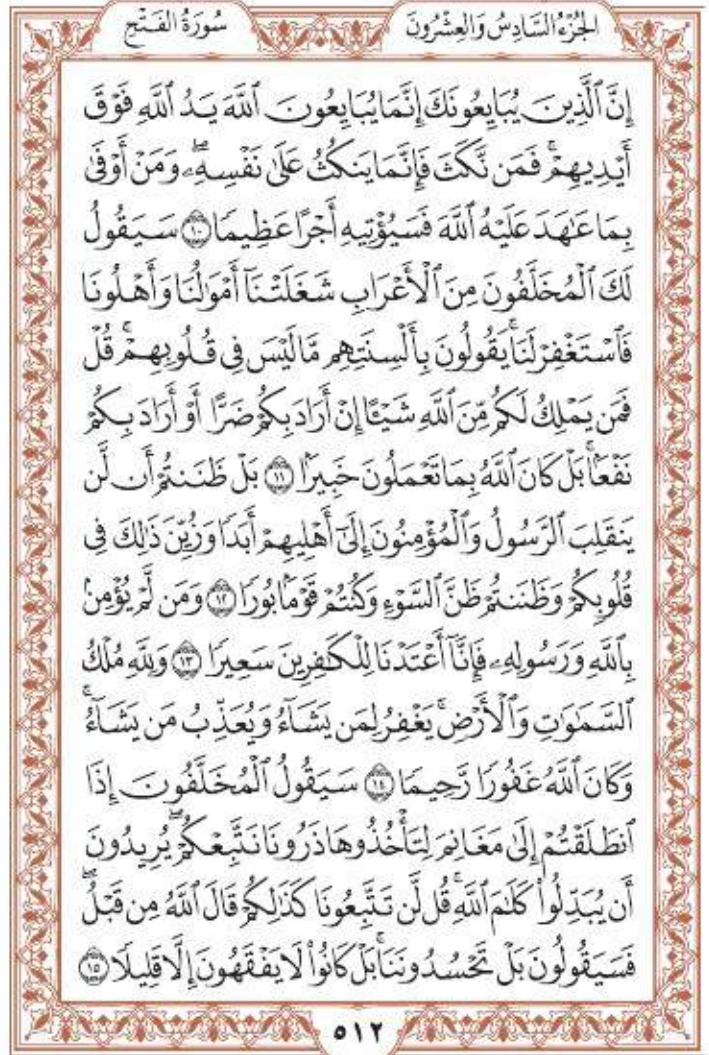 الجُزْءُ السَّادِسُ وَالعِشْرُونَ سُورَةُ الفَتْحِ
إِنَّ ٱلَّذِينَ يُبَايِعُونَكَ إِنَّمَا يُبَايِعُونَ ٱللَّهَ يَدُ ٱللَّهِ فَوْقَ
أَيْدِيهِمْۚ فَمَن نَّكَثَ فَإِنَّمَا يَنكُثُ عَلَىٰ نَفْسِهِۦۖ وَمَنْ أَوْفَىٰ
بِمَا عَٰهَدَ عَلَيْهُ ٱللَّهَ فَسَيُؤْتِيهِ أَجْرًا عَظِيمًا ١٠ سَيَقُولُ
لَكَ ٱلْمُخَلَّفُونَ مِنَ ٱلْأَعْرَابِ شَغَلَتْنَآ أَمْوَٰلُنَا وَأَهْلُونَا
فَٱسْتَغْفِرْ لَنَاۚ يَقُولُونَ بِأَلْسِنَتِهِم مَّا لَيْسَ فِى قُلُوبِهِمْۚ قُلْ
فَمَن يَمْلِكُ لَكُم مِّنَ ٱللَّهِ شَيْـًٔا إِنْ أَرَادَ بِكُمْ ضَرًّا أَوْ أَرَادَ بِكُمْ
نَفْعَۢاۚ بَلْ كَانَ ٱللَّهُ بِمَا تَعْمَلُونَ خَبِيرَۢا ١١ بَلْ ظَنَنتُمْ أَن لَّن
يَنقَلِبَ ٱلرَّسُولُ وَٱلْمُؤْمِنُونَ إِلَىٰٓ أَهْلِيهِمْ أَبَدًا وَزُيِّنَ ذَٰلِكَ فِى
قُلُوبِكُمْ وَظَنَنتُمْ ظَنَّ ٱلسَّوْءِ وَكُنتُمْ قَوْمَۢا بُورًا ١٢ وَمَن لَّمْ يُؤْمِنۢ
بِٱللَّهِ وَرَسُولِهِۦ فَإِنَّآ أَعْتَدْنَا لِلْكَٰفِرِينَ سَعِيرًا ١٣ وَلِلَّهِ مُلْكُ
ٱلسَّمَٰوَٰتِ وَٱلْأَرْضِۚ يَغْفِرُ لِمَن يَشَآءُ وَيُعَذِّبُ مَن يَشَآءُۚ
وَكَانَ ٱللَّهُ غَفُورًا رَّحِيمًا ١٤ سَيَقُولُ ٱلْمُخَلَّفُونَ إِذَا
ٱنطَلَقْتُمْ إِلَىٰ مَغَانِمَ لِتَأْخُذُوهَا ذَرُونَا نَتَّبِعْكُمْۖ يُرِيدُونَ
أَن يُبَدِّلُوا۟ كَلَٰمَ ٱللَّهِۚ قُل لَّن تَتَّبِعُونَا كَذَٰلِكُمْ قَالَ ٱللَّهُ مِن قَبْلُۖ
فَسَيَقُولُونَ بَلْ تَحْسُدُونَنَاۚ بَلْ كَانُوا۟ لَا يَفْقَهُونَ إِلَّا قَلِيلًا ١٥
٥١٢